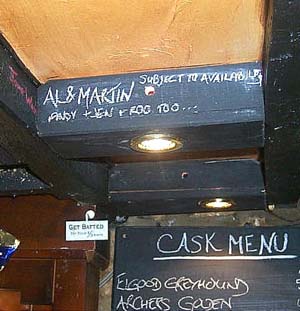 SUBJECT TO AVAILABILITY
AL & MARTIN
ANDY + JEN + ROO TOO...
GET BATTED
CASK MENU
ELGOOD GREYHOUND
ARCHERS GOLDEN